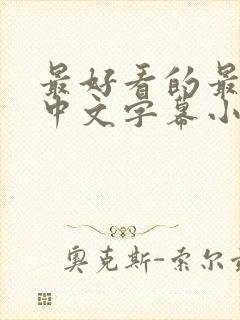 最好看的最
中文字幕小
奥克斯-索尔